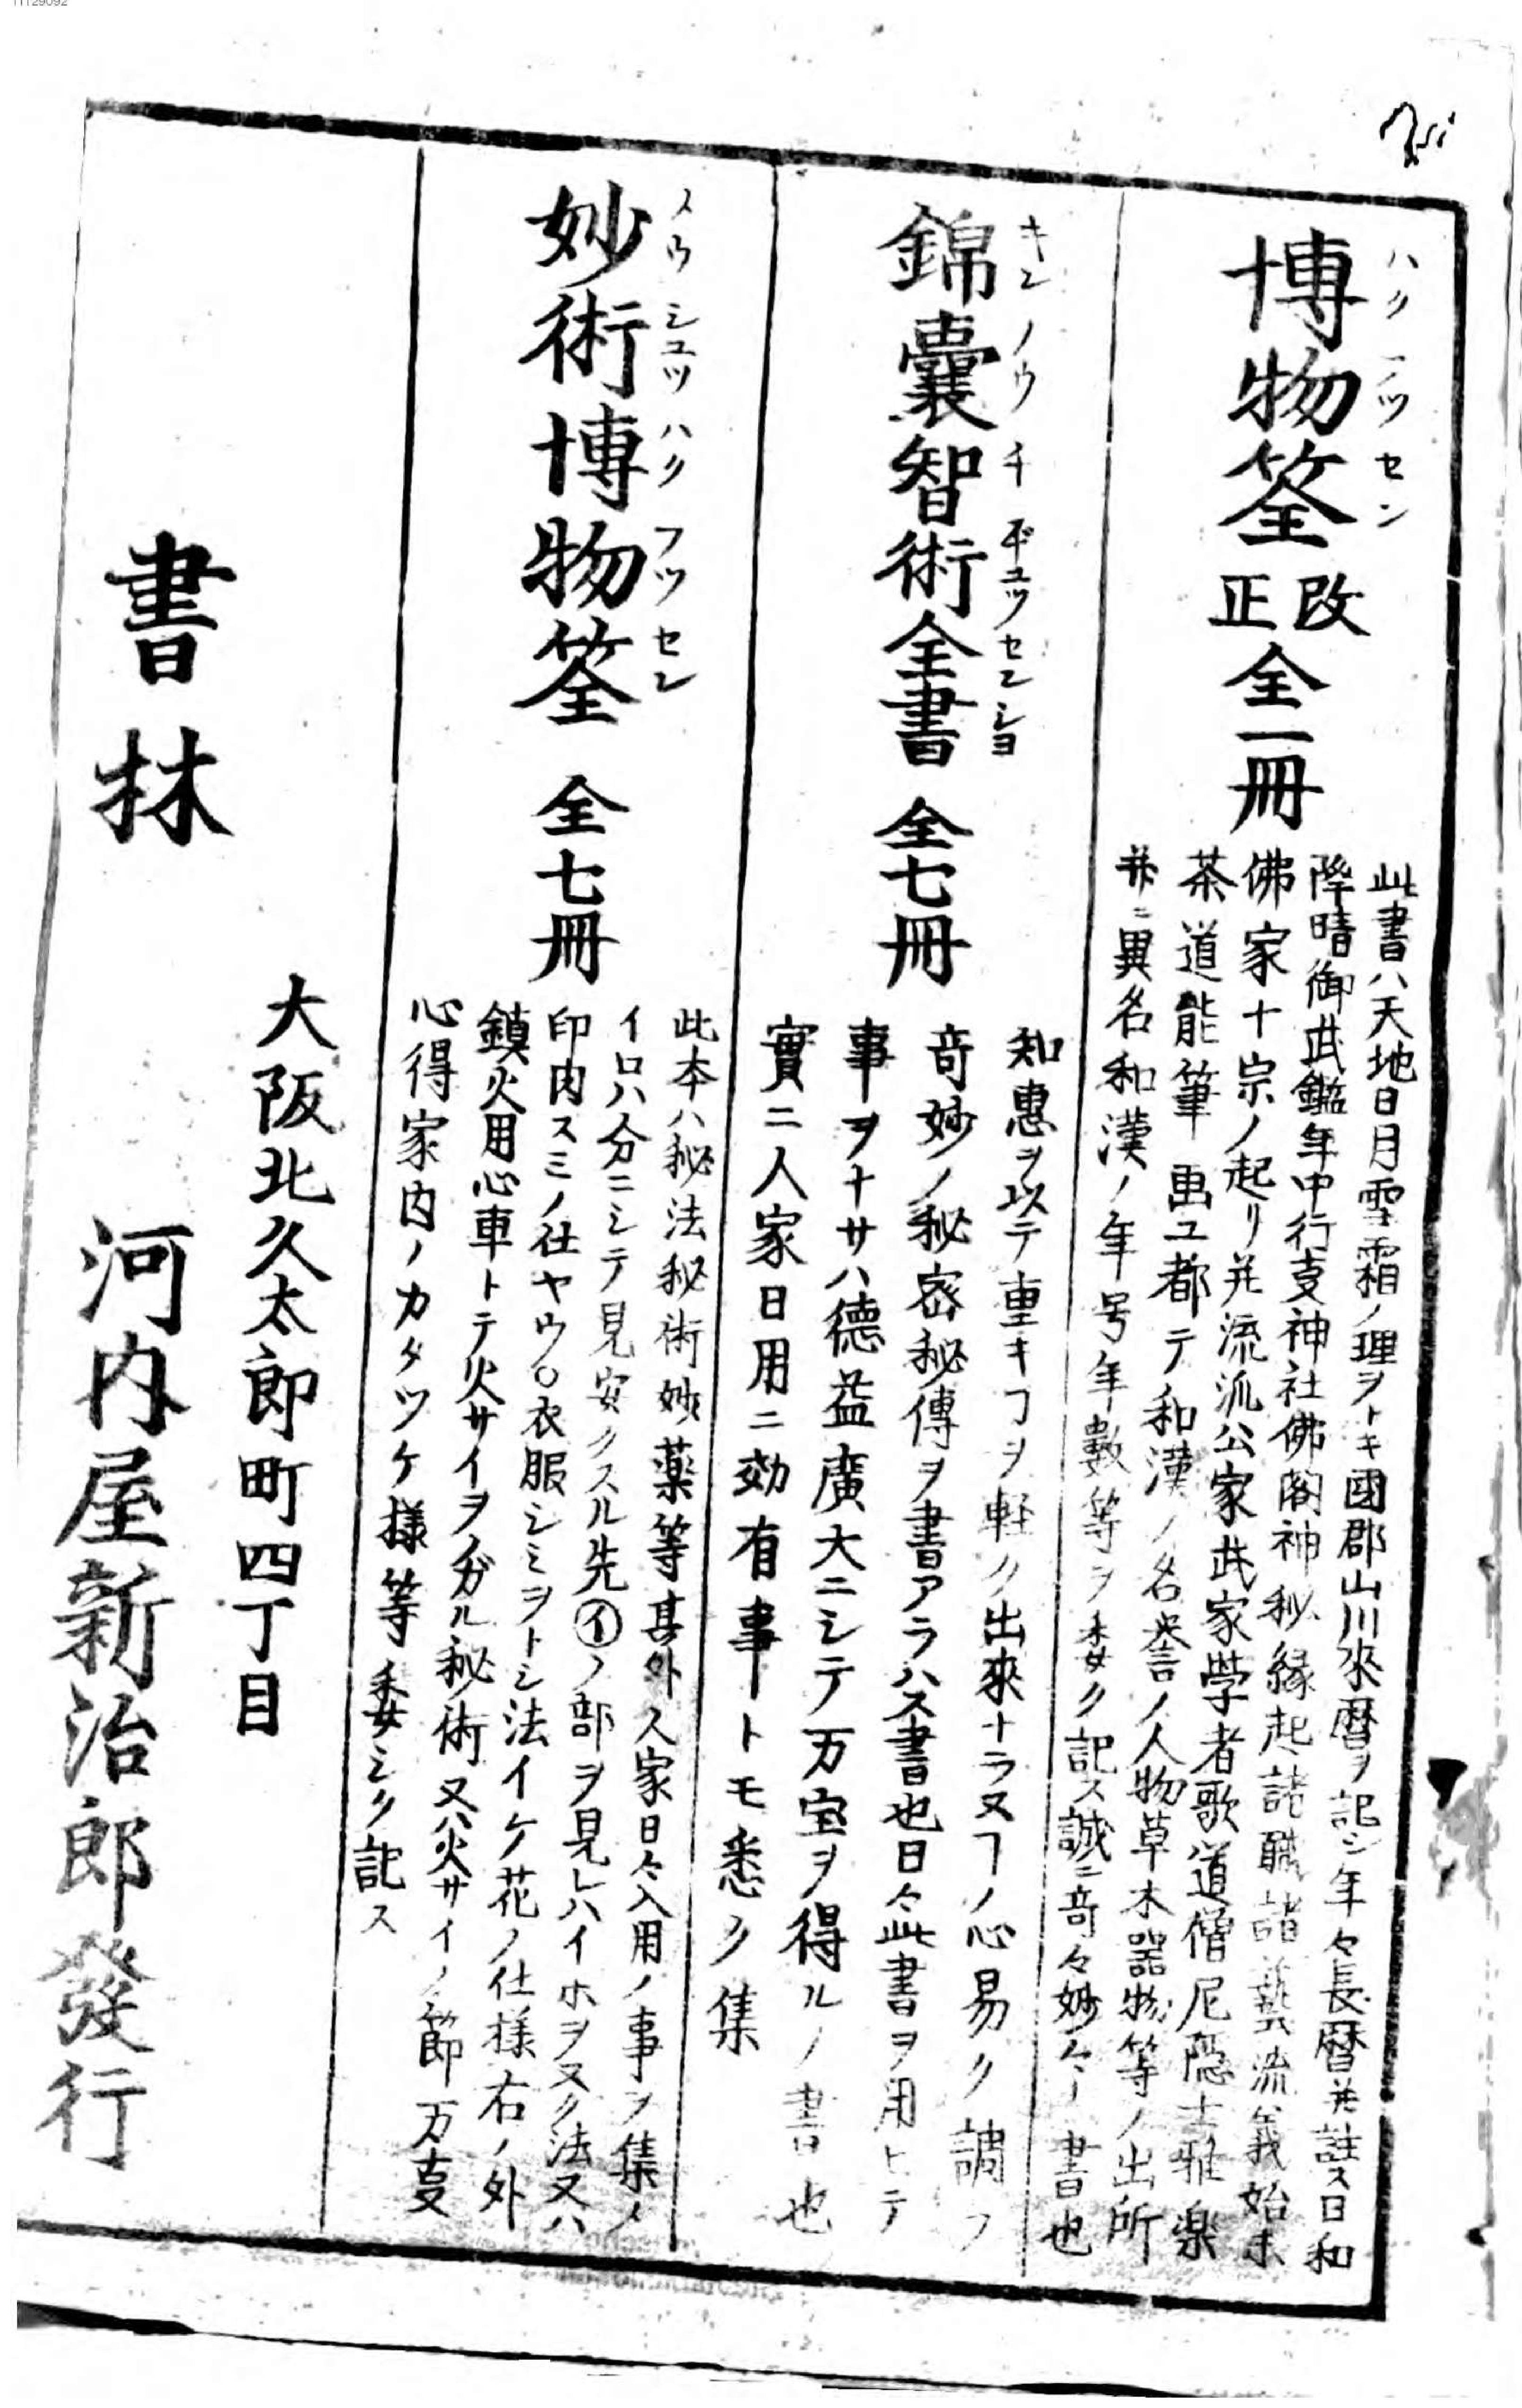 11129092
博物筌 改正 全一冊
ハクフツセン
此書ハ天地日月雪霜ノ理ヲトキ國郡山川來暦ヲ記シ年々長暦并註ス日和
降晴御武鑑年中行叓神社佛閣神秘縁起諸職諸藝流義始末
佛家十宗ノ起リ并流派公家武家学者歌道僧尼隠士雅楽
茶道能筆画工都テ和漢ノ名誉ノ人物草木器物等ノ出所
并ニ異名和漢ノ年号年數等ヲ委ク記ス誠ニ奇々妙々ノ書也
錦嚢智術全書 全七冊
キンノウチヂュツセンショ
知惠ヲ以テ重キヿヲ軽ク出來ナラヌヿノ心易ク調フ
奇妙ノ秘密秘傳ヲ書アラハス書也日々此書ヲ用ヒテ
事ヲナサハ德益廣大ニシテ万宝ヲ得ルノ書也
實ニ人家日用ニ効有事トモ悉ク集
妙術博物筌 全七冊
メウシュツハクフツセン
此本ハ秘法秘術妙薬等其外人家日々入用ノ事ヲ集メ
イロハ分ニシテ見安クスル先㋑ノ部ヲ見レハイホヲヌク法又ハ
印肉スミノ仕ヤウ○衣服シミヲトシ法イケ花ノ仕様右ノ外
鎮火用心車トテ火サイヲノガル秘術又ハ火サイノ節万叓
心得家内ノカタツケ様等委シク記ス
書林
大阪北久太郎町四丁目
河内屋新治郎發行